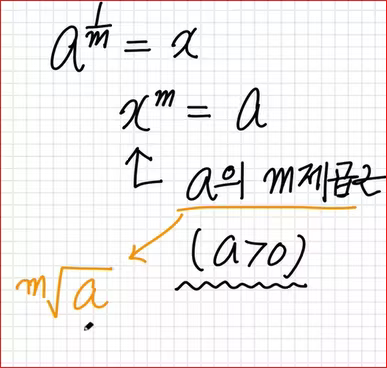 a^{1/m} = x
x^m = a
a의 m제곱근
(a>0)
\sqrt[m]{a}